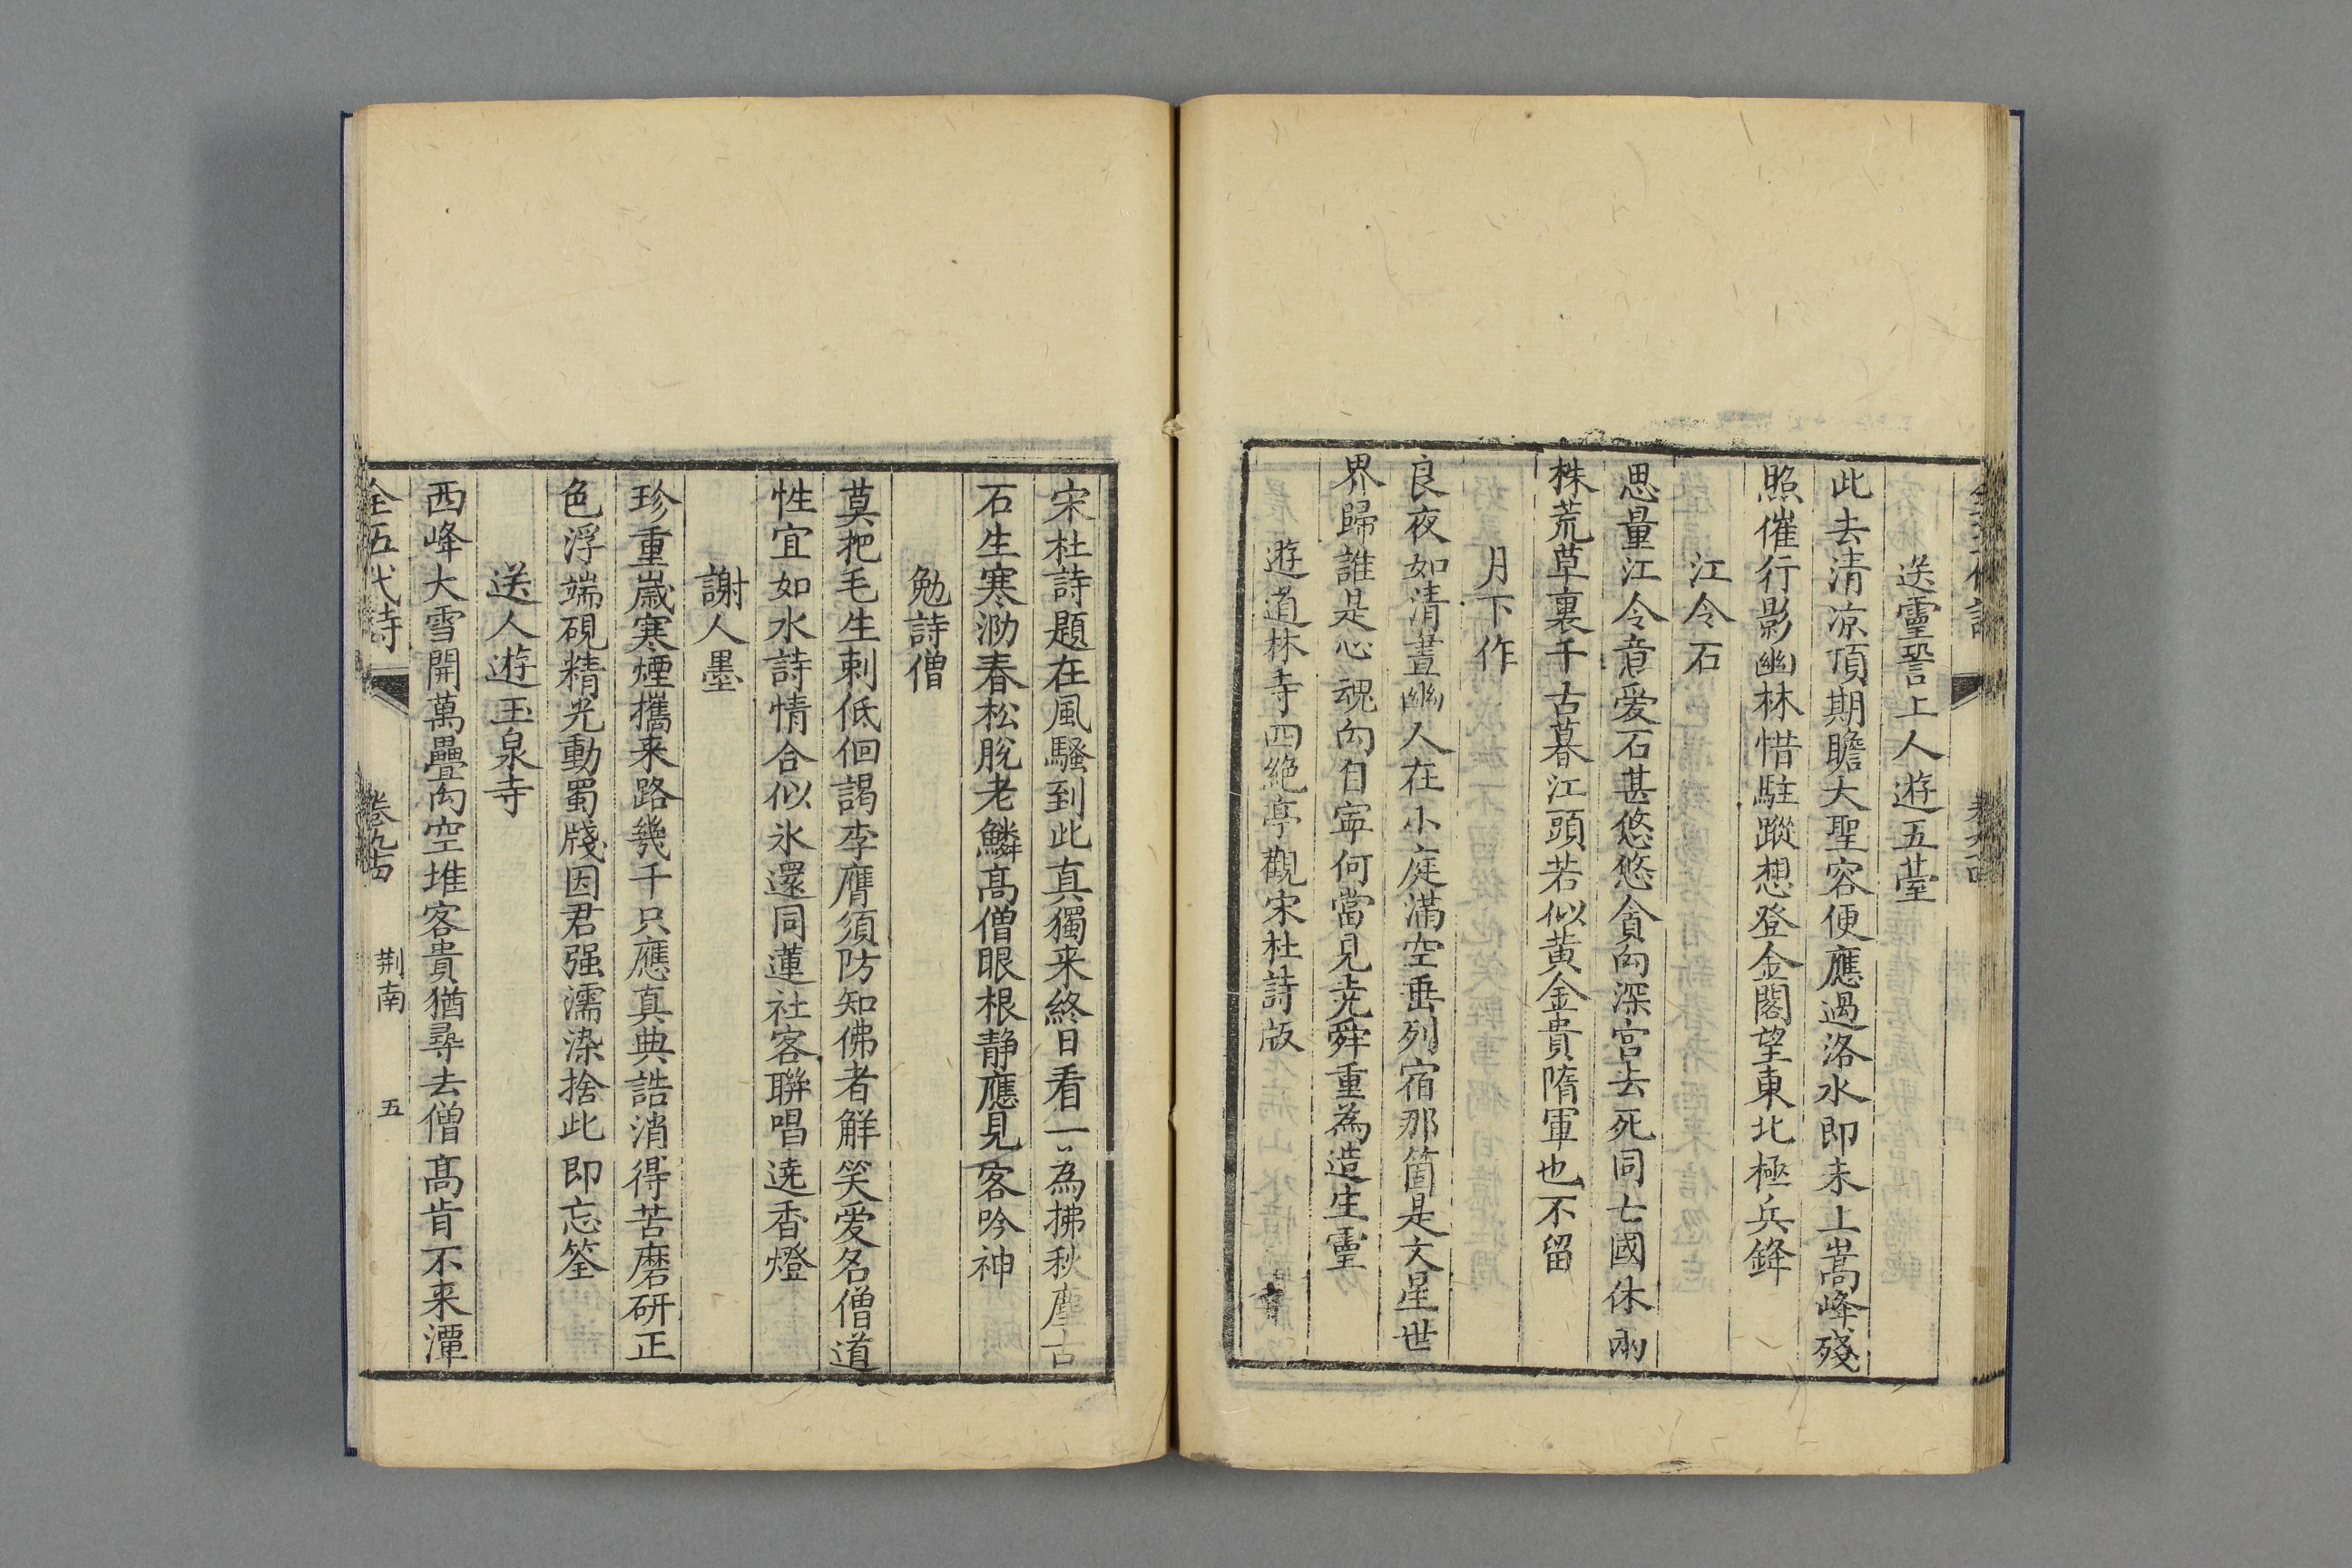 送靈䛒上人遊五䑓
此去清凉頂期瞻大聖容便應過洛水即未上嵩峰殘
照催行影幽林惜駐蹤想登金閣望東北極兵鋒
江令石
思量江令意愛石甚悠悠貪向深宮去死同亡國休兩
株荒草裏千古暮江頭若似黃金貴隋軍也不留
月下作
良夜如清晝幽人在小庭滿空垂列宿那箇是文星世
界歸誰是心魂向自寧何當見堯舜重為造生靈
遊道林寺四絕亭觀宋杜詩版
宋杜詩題在風騷到此真獨来終日看一〻為拂秋塵古
石生寒泐春松脫老鱗髙僧眼根静應見客吟神
勉詩僧
莫把毛生刺低佪謁李膺須防知佛者解笑愛名僧道
性宜如水詩情合似氷還同蓮社客聯唱遶香燈
謝人墨
珍重嵗寒煙攜来路幾千只應真典誥消得苦磨研正
色浮端硯精光動蜀牋因君强濡染捨此即忘筌
送人遊玉泉寺
西峰大雪開萬疊向空堆客貴猶尋去僧髙肯不来潭
全五代詩 卷九古 荆南 五